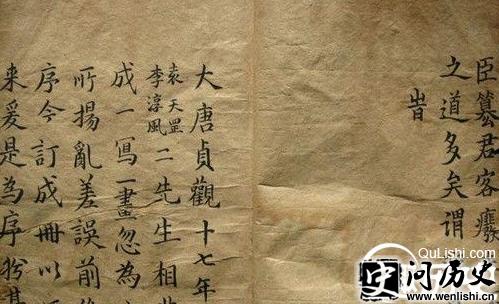 臣篡君客癘
之道多矣謂
旹
大唐貞觀十七年
袁天罡
李淳風
二先生相
成一寫一畫忽為
所揚亂差誤前
序今訂成冊以
来爰是為序
QuLishi.com
问历史
www.wenlishi.cn